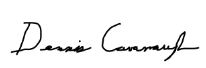 Dennis Cavanaugh